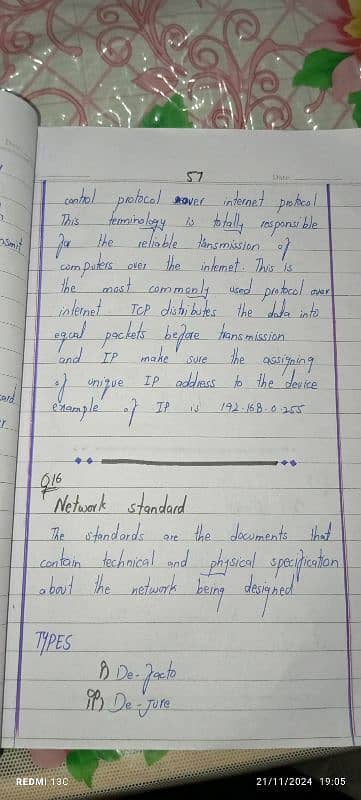 57
Date
control protocol over internet protocol
This terminology is totally responsible
for the reliable transmission of
computers over the internet. This is
the most commonly used protocol over
internet TCP distributes the data into
eqal packets before transmission
and IP make sure the assigning
of unique IP address to the device
example of IP is 192.168.0.255
Q16
Network standard
The standards are the documents that
contain technical and physical specification
about the network being designed
TYPES
i) De-facto
ii) De-Jure
REDMI 13C
21/11/2024 19:05